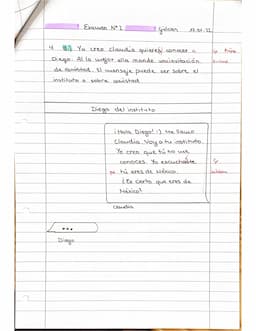 Examen N°1
4. Yo creo claudia quieres conocer a
Diego. Al lo mejor ella mande una invitación
de amistad. El mensaje puede ser sobre el
instituto o sobre amistad.
Diego del instituto
¡Hola Diego! :) Me llamo
Claudia. Voy a tu instituto.
Yo creo que tú no me
conoces. Yo escuchaste
tú eres de México.
¿Es certo que eres de
México?
Claudia
...
Diego